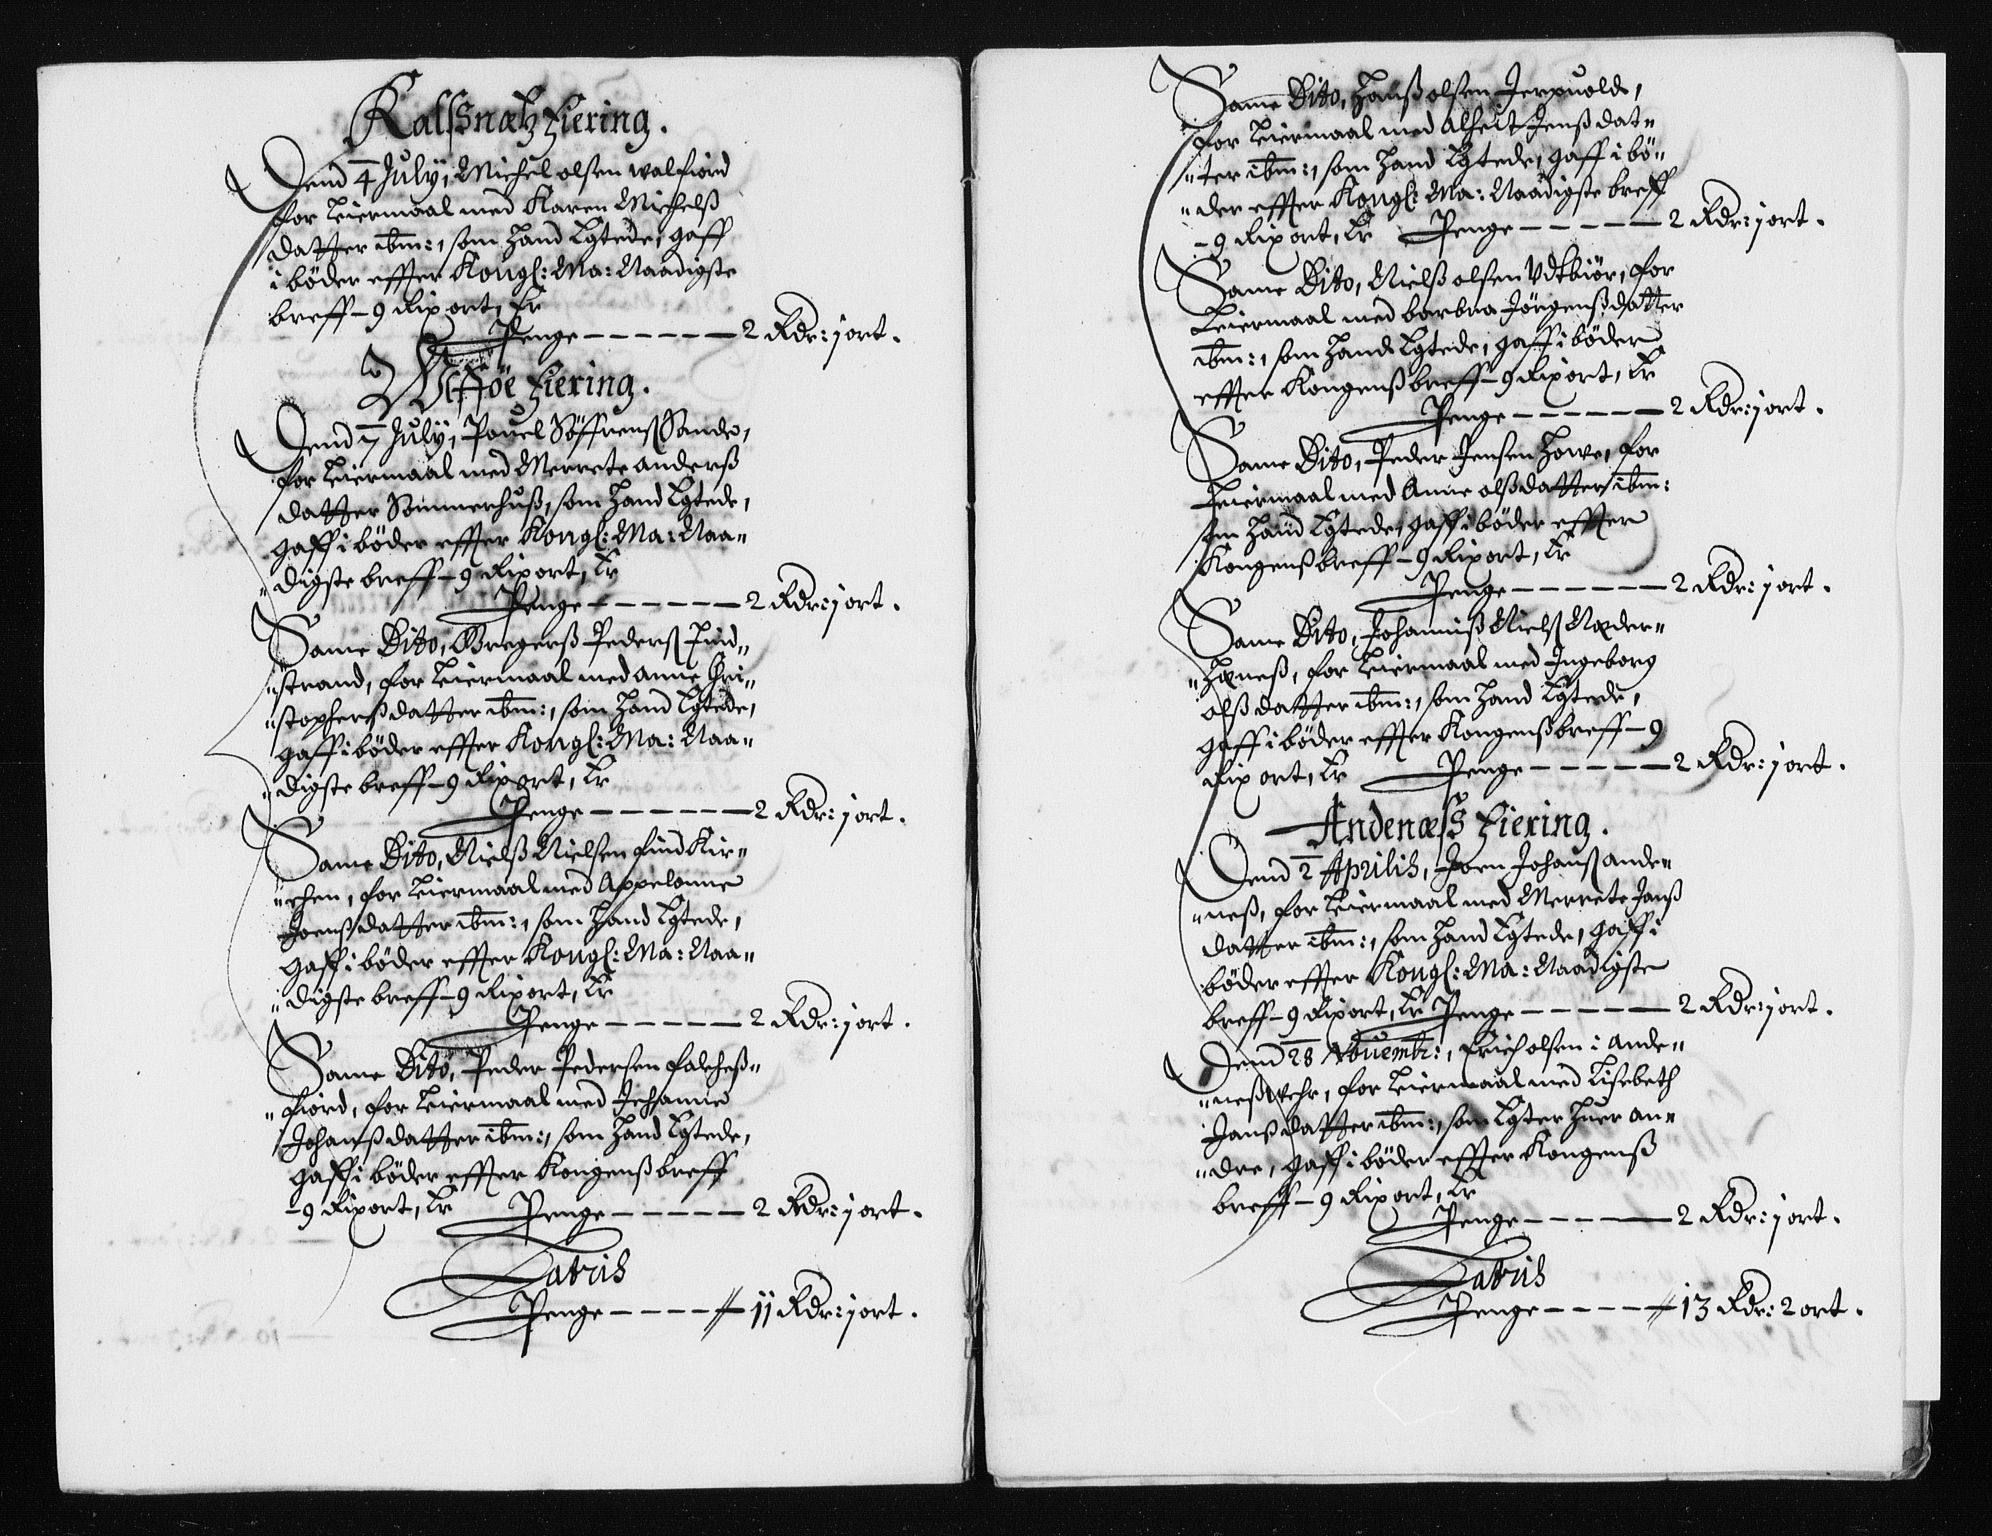 Kalßnætz fiering.
Dend 4 July, Michel olsen walfiord
for Leiermaal med Karen Michelß
datter ibm:, som hand Egtede, gaff
i böder effter Kongl: Ma: Naadigste
breff - 9 Rix ort, Er
Penge - - - - - - 2 Rdr: 1 ort.
fiering.
Dend 7 July, Pouel Söffrenß Sande,
for Leiermaal med Merrete anderß
datter Sommerhuß, som hand Egtede,
gaff i böder effter Kongl: Ma: Naa-
digste breff - 9 Rix ort, Er
Penge - - - - - - 2 Rdr: 1 ort.
Same Dito, Gregerß Pederß Find-
strand, for Leiermaal med anne Chri-
stopherß datter ibm:, som hand Egtede,
gaff i böder effter Kongl: Ma: Naa-
digste breff - 9 Rix ort, Er
Penge - - - - - - 2 Rdr: 1 ort.
Same Dito, Nielß Nielsen find Kir-
chen, for Leiermaal med Appelonne
Joenß datter ibm:, som hand Egtede,
gaff i böder effter Kongl: Ma: Naa-
digste breff - 9 Rix ort, Er
Penge - - - - - - 2 Rdr: 1 ort.
Same Dito, Peder Pedersen falcheß-
fiord, for Leiermaal med Johanne
Johanß datter ibm:, som hand Egtede,
gaff i böder effter Kongenß breff
- 9 Rix ort, Er Penge - - - - - 2 Rdr: 1 ort.
Lateris
Penge - - - - 11 Rdr: 1 ort.
Same Dito, Hanß olsen Jerpuold,
for Leiermaal med Alheit Jenß dat-
ter ibm:, som hand Egtede, gaff i bö-
der effter Kongl: Ma: Naadigste breff
- 9 Rix ort, Er Penge - - - - - 2 Rdr: 1 ort.
Same Dito, Nielß olsen Udkiör, for
Leiermaal med barbra Jörgenß datter
ibm:, som hand Egtede, gaff i böder
effter Kongenß breff - 9 Rix ort, Er
Penge - - - - - - 2 Rdr: 1 ort.
Same Dito, Peder Jensen Howe, for
Leiermaal med Anne olß datter ibm:
som hand Egtede, gaff i böder effter
Kongenß breff - 9 Rix ort, Er
Penge - - - - - - 2 Rdr: 1 ort.
Same Dito, Johanniß Nielß Neder-
haneß, for Leiermaal med Ingeborg
olß datter ibm:, som hand Egtede,
gaff i böder effter Kongenß breff - 9
Rix ort, Er Penge - - - - - 2 Rdr: 1 ort.
Andenæß fiering.
Dend 2 Aprilis, Joen Johanß ande-
neß, for Leiermaal med Merrete Janß
datter ibm:, som hand Egtede, gaff i
böder effter Kongl: Ma: Naadigste
breff - 9 Rix ort, Er Penge - - - - - 2 Rdr: 1 ort.
Dend 28 Novembr:, Erich olsen i ande-
neßwehr, for Leiermaal med Lisebeth
Janß datter ibm:, som Egter huer an-
dre, gaff i böder effter Kongenß
breff - 9 Rix ort, Er
Penge - - - - - 2 Rdr: 1 ort.
Lateris
Penge - - - - 13 Rdr: 2 ort.